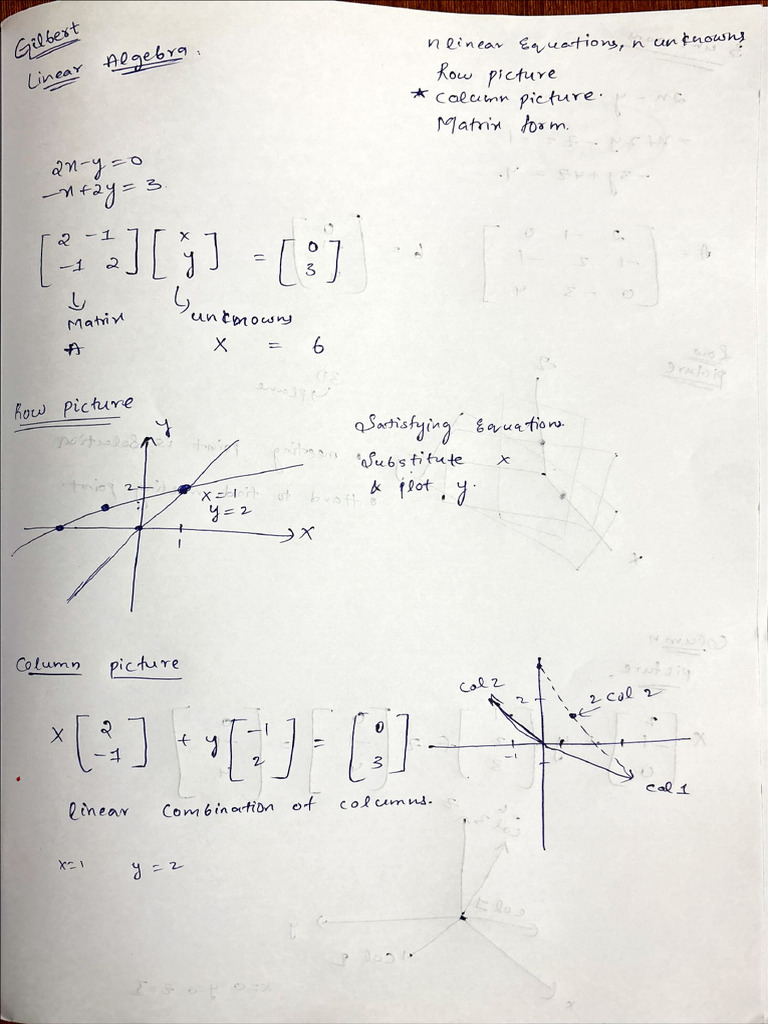 Gilbert
Linear Algebra.
n linear Equations, n unknowns
Row picture
* column picture.
Matrix form.
2x-y=0
-x+2y=3
[2 -1] [x] = [0]
[-1 2] [y] [3]
Matrix unknowns
A X = b
Row picture
y
Satisfying Equation.
Substitute x
& plot y.
2
x=1
y=2
X
1
Column picture
col 2
2
2 col 2
x [2] + y [-1] = [0]
[-1] [2] [3]
-1
col 1
linear combination of columns.
x=1 y=2